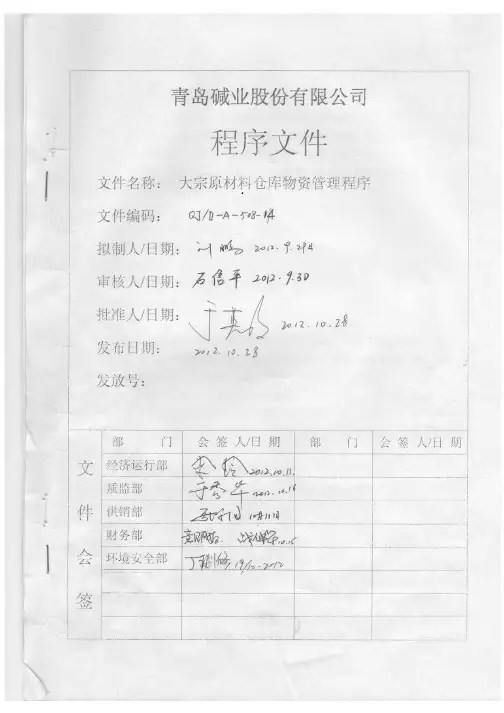 青岛碱业股份有限公司
程序文件
文件名称：大宗原材料仓库物资管理程序
文件编码：QJ/D-A-508-
拟制人/日期：刘鹏 2012.9.29
审核人/日期：石信平 2012.9.30
批准人/日期：于 2012.10.28
发布日期：2012.10.28
发放号：
文件会签
部 门 会签人/日期 部 门 会签人/日期
经济运行部 2012.10.11.
质监部 于秀华 2012.10.16
供销部 10月11日
财务部
环境安全部 丁 19/10-2012